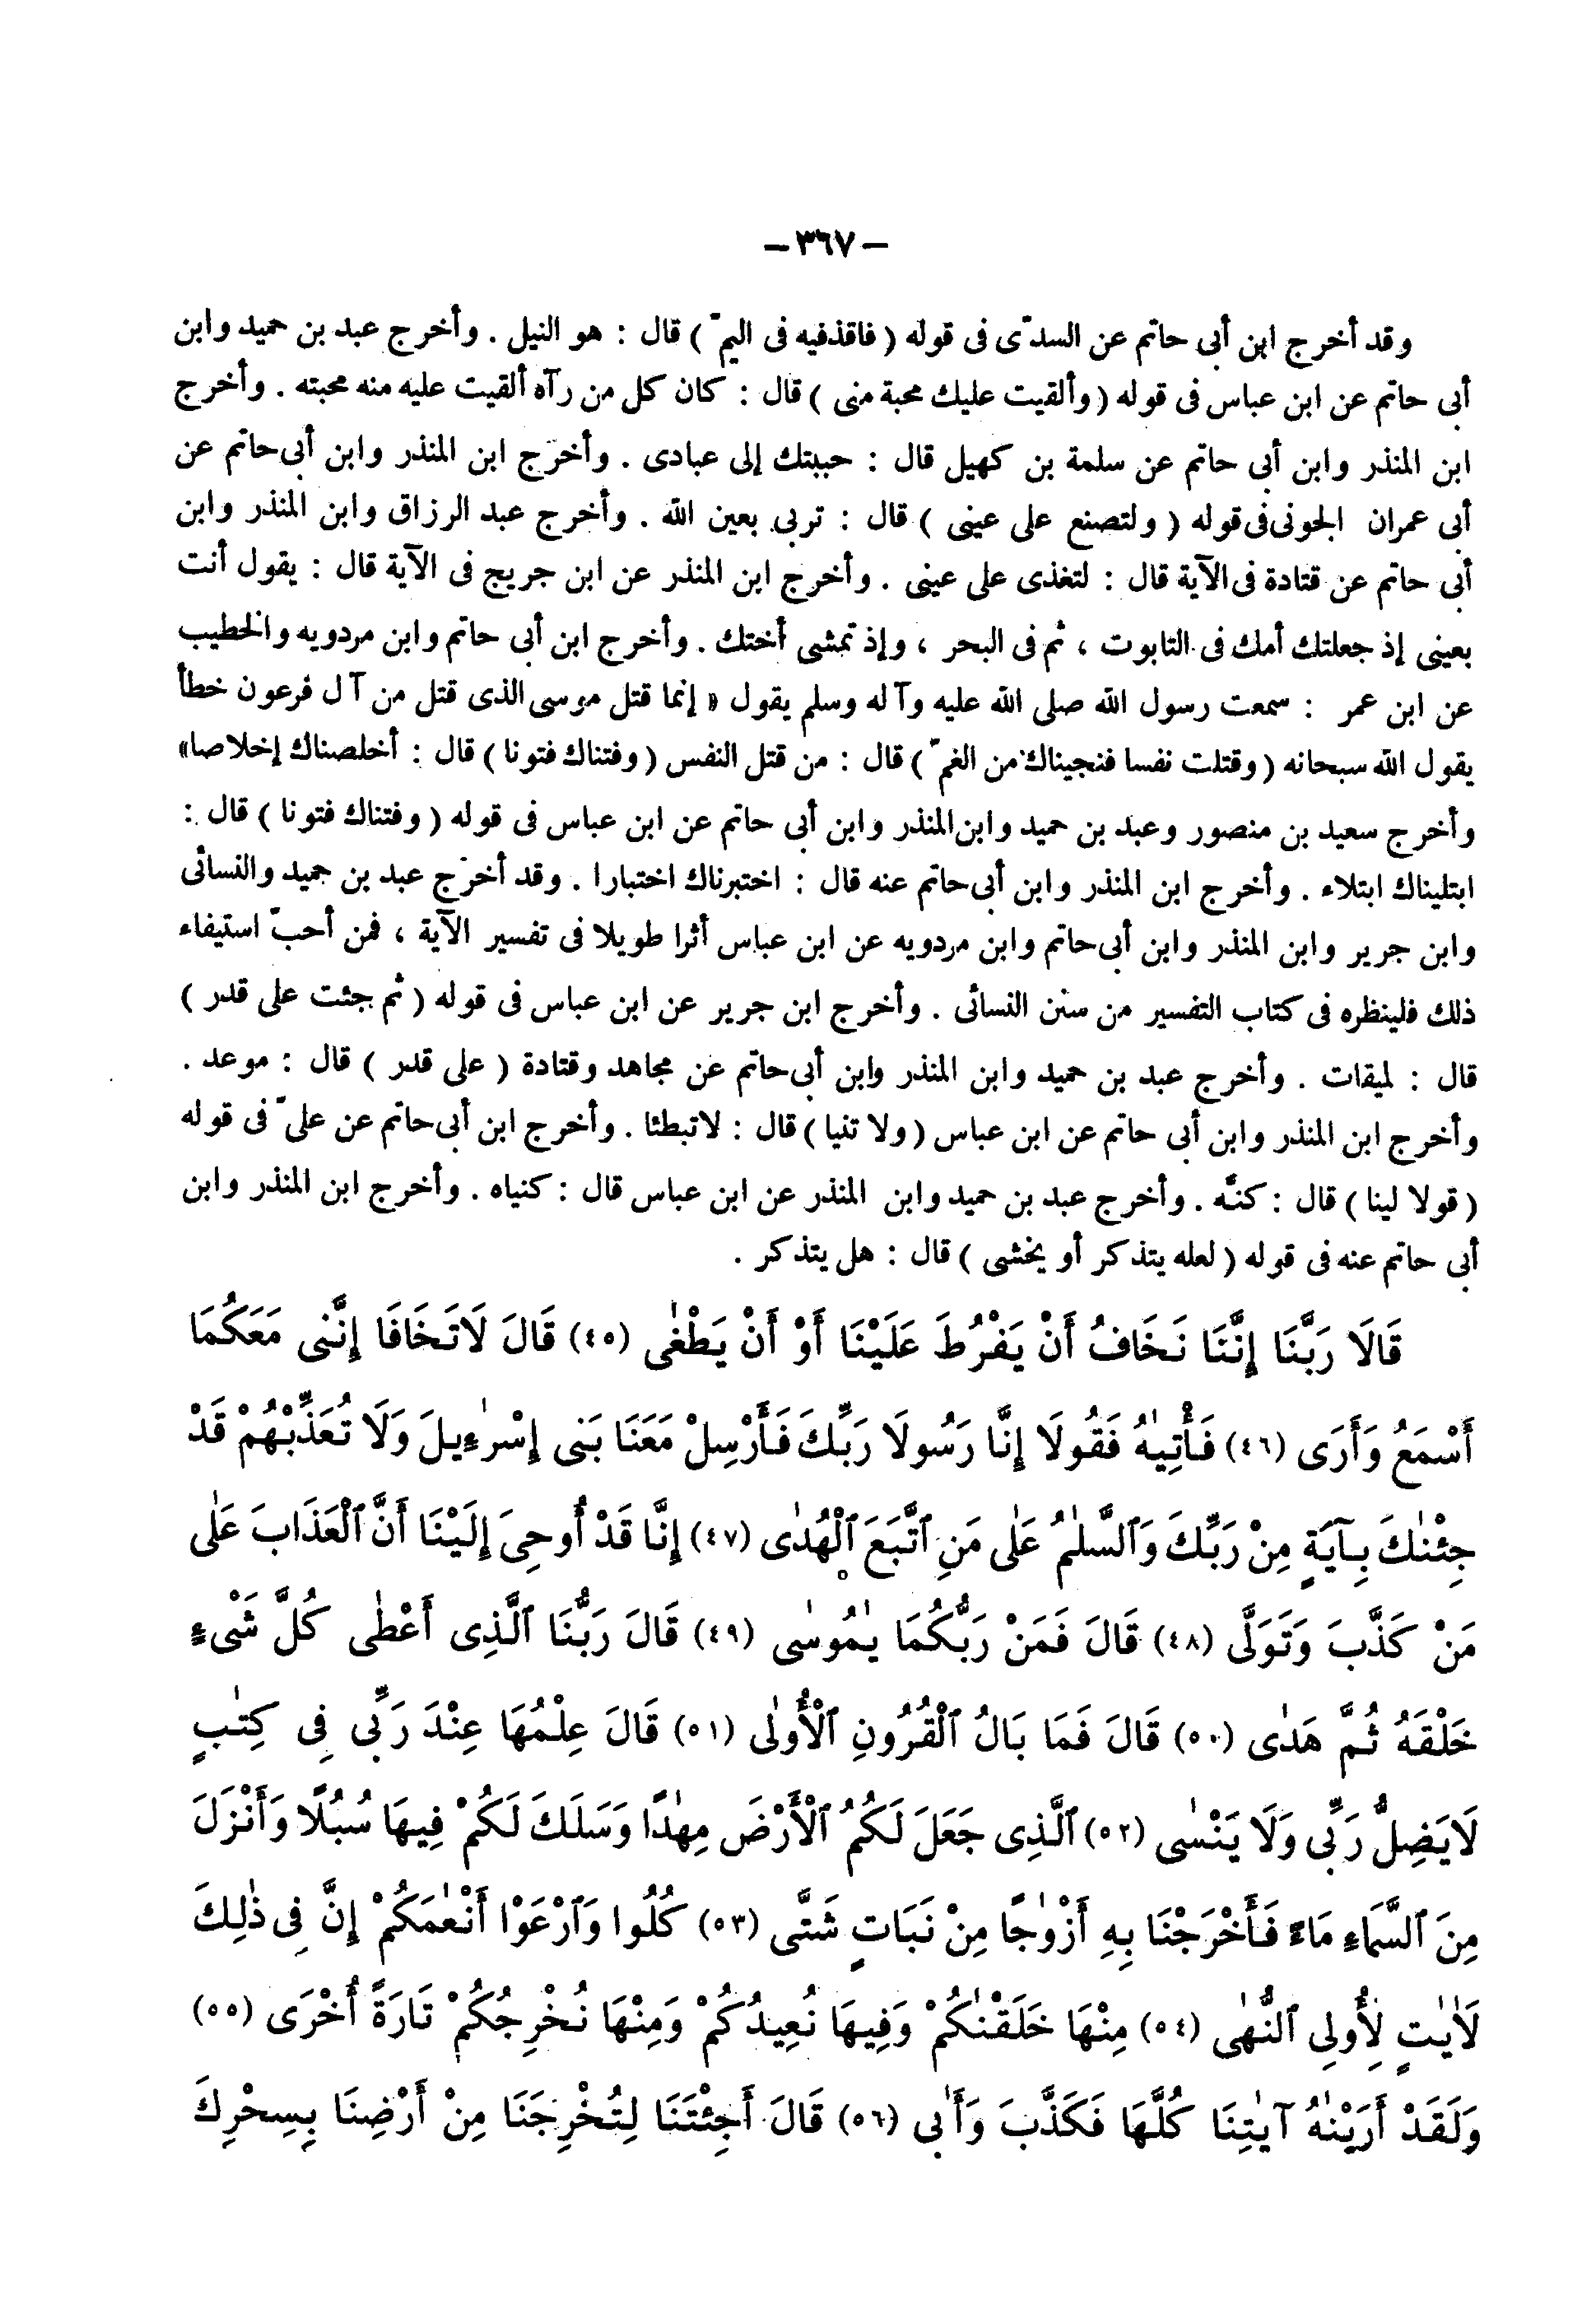 – ٣٦٧ –
وقد أخرج ابن أبى حاتم عن السدّى فى قوله ( فاقذفيه فى اليمّ ) قال : هو النيل . وأخرج عبد بن حميد وابن
أبى حاتم عن ابن عباس فى قوله ( وألقيت عليك محبة منى ) قال : كان كل من رآه ألقيت عليه منه محبته . وأخرج
ابن المنذر وابن أبى حاتم عن سلمة بن كهيل قال : حببتك إلى عبادى . وأخرج ابن المنذر وابن أبى حاتم عن
أبى عمران الجونى فى قوله ( ولتصنع على عينى ) قال : تربى بعين الله . وأخرج عبد الرزاق وابن المنذر وابن
أبى حاتم عن قتادة فى الآية قال : لتغذى على عينى . وأخرج ابن المنذر عن ابن جريج فى الآية قال : يقول أنت
بعينى إذ جعلتك أمك فى التابوت ، ثم فى البحر ، وإذ تمشى أختك . وأخرج ابن أبى حاتم وابن مردويه والخطيب
عن ابن عمر : سمعت رسول الله صلى الله عليه وآله وسلم يقول « إنما قتل موسى الذى قتل من آل فرعون خطأ
يقول الله سبحانه ( وقتلت نفسا فنجيناك من الغمّ ) قال : من قتل النفس ( وفتناك فتونا ) قال : أخلصناك إخلاصا»
وأخرج سعيد بن منصور وعبد بن حميد وابن المنذر وابن أبى حاتم عن ابن عباس فى قوله ( وفتناك فتونا ) قال :
ابتليناك ابتلاء . وأخرج ابن المنذر وابن أبى حاتم عنه قال : اختبرناك اختبارا . وقد أخرج عبد بن حميد والنسائى
وابن جرير وابن المنذر وابن أبى حاتم وابن مردويه عن ابن عباس أثرا طويلا فى تفسير الآية ، فمن أحبّ استيفاء
ذلك فلينظره فى كتاب التفسير من سنن النسائى . وأخرج ابن جرير عن ابن عباس فى قوله ( ثم جئت على قدر )
قال : لميقات . وأخرج عبد بن حميد وابن المنذر وابن أبى حاتم عن مجاهد وقتادة ( على قدر ) قال : موعد .
وأخرج ابن المنذر وابن أبى حاتم عن ابن عباس ( ولا تنيا ) قال : لا تبطئا . وأخرج ابن أبى حاتم عن علىّ فى قوله
( قولا لينا ) قال : كنّه . وأخرج عبد بن حميد وابن المنذر عن ابن عباس قال : كنياه . وأخرج ابن المنذر وابن
أبى حاتم عنه فى قوله ( لعله يتذكر أو يخشى ) قال : هل يتذكر .
قَالَا رَبَّنَا إِنَّنَا نَخَافُ أَنْ يَفْرُطَ عَلَيْنَا أَوْ أَنْ يَطْغٰى (٤٥) قَالَ لَاتَخَافَا إِنَّنِى مَعَكُمَا
أَسْمَعُ وَأَرَى (٤٦) فَأْتِيٰهُ فَقُولَا إِنَّا رَسُولَا رَبِّكَ فَأَرْسِلْ مَعَنَا بَنِى إِسْرٰءِيلَ وَلَا تُعَذِّبْهُمْ قَدْ
جِئْنٰكَ بِآيَةٍ مِنْ رَبِّكَ وَٱلسَّلٰمُ عَلٰى مَنِ ٱتَّبَعَ ٱلْهُدٰى (٤٧) إِنَّا قَدْ أُوحِىَ إِلَيْنَا أَنَّ ٱلْعَذَابَ عَلٰى
مَنْ كَذَّبَ وَتَوَلَّى (٤٨) قَالَ فَمَنْ رَبُّكُمَا يٰمُوسٰى (٤٩) قَالَ رَبُّنَا ٱلَّذِى أَعْطٰى كُلَّ شَىْءٍ
خَلْقَهُ ثُمَّ هَدٰى (٥٠) قَالَ فَمَا بَالُ ٱلْقُرُونِ ٱلْأُولٰى (٥١) قَالَ عِلْمُهَا عِنْدَ رَبِّى فِى كِتٰبٍ
لَايَضِلُّ رَبِّى وَلَا يَنْسٰى (٥٢) ٱلَّذِى جَعَلَ لَكُمُ ٱلْأَرْضَ مِهٰدًا وَسَلَكَ لَكُمْ فِيهَا سُبُلًا وَأَنْزَلَ
مِنَ ٱلسَّمَاءِ مَاءً فَأَخْرَجْنَا بِهِ أَزْوٰجًا مِنْ نَبَاتٍ شَتَّى (٥٣) كُلُوا وَٱرْعَوْا أَنْعٰمَكُمْ إِنَّ فِى ذٰلِكَ
لَأٰيٰتٍ لِأُولِى ٱلنُّهٰى (٥٤) مِنْهَا خَلَقْنٰكُمْ وَفِيهَا نُعِيدُكُمْ وَمِنْهَا نُخْرِجُكُمْ تَارَةً أُخْرَى (٥٥)
وَلَقَدْ أَرَيْنٰهُ آيٰتِنَا كُلَّهَا فَكَذَّبَ وَأَبٰى (٥٦) قَالَ أَجِئْتَنَا لِتُخْرِجَنَا مِنْ أَرْضِنَا بِسِحْرِكَ